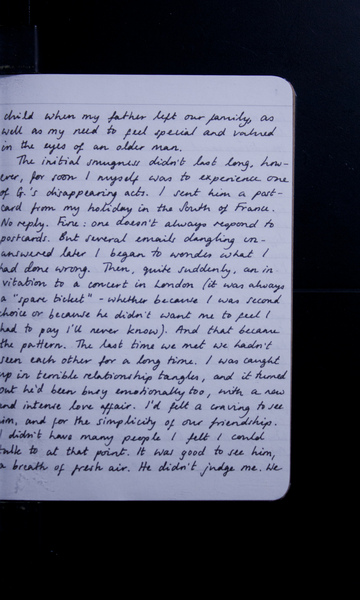 child when my father left our family, as
well as my need to feel special and valued
in the eyes of an older man.
The initial smugness didn't last long, how-
ever, for soon I myself was to experience one
of G.'s disappearing acts. I sent him a post-
card from my holiday in the South of France.
No reply. Fine: one doesn't always respond to
postcards. But several emails dangling un-
answered later I began to wonder what I
had done wrong. Then, quite suddenly, an in-
vitation to a concert in London (it was always
a "spare ticket" - whether because I was second
choice or because he didn't want me to feel I
had to pay I'll never know). And that became
the pattern. The last time we met we hadn't
seen each other for a long time. I was caught
up in terrible relationship tangles, and it turned
out he'd been busy emotionally too, with a new
and intense love affair. I'd felt a craving to see
him, and for the simplicity of our friendship.
I didn't have many people I felt I could
talk to at that point. It was good to see him,
a breath of fresh air. He didn't judge me. We